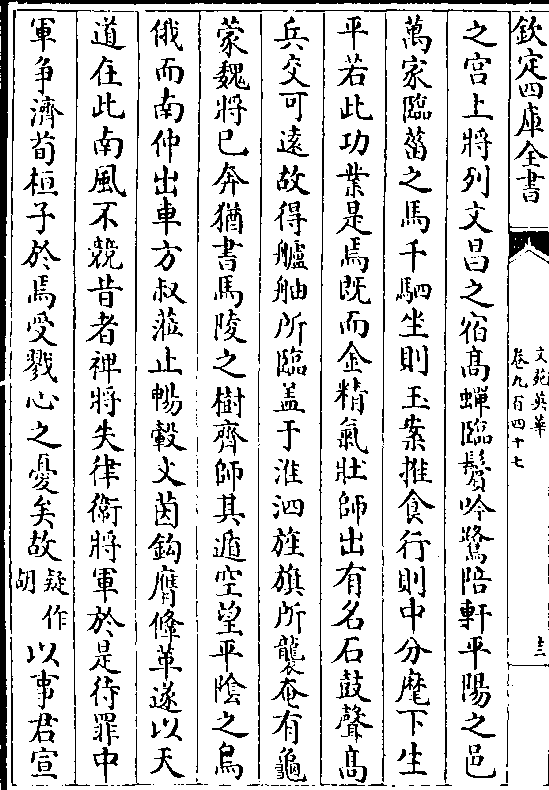 欽定四庫全書
文苑英華
卷九百四十七
十三
之宫上將列文昌之宿髙蟬臨鬢吟鷺陪軒平陽之邑
萬家臨菑之馬千駟坐則玉案推食行則中分麾下生
平若此功業是焉既而金精氣壯師出有名石鼓聲髙
兵交可逺故得艫舳所臨盖于淮泗旌旗所襲奄有龜
蒙魏將已奔猶書馬陵之樹齊師其遁空望平隂之烏
俄而南仲出車方叔蒞止暢轂文茵鈎膺鞗革遂以天
道在此南風不競昔者裨將失律衛將軍於是待罪中
軍争濟荀桓子於焉受戮心之憂矣故疑作胡以事君宣